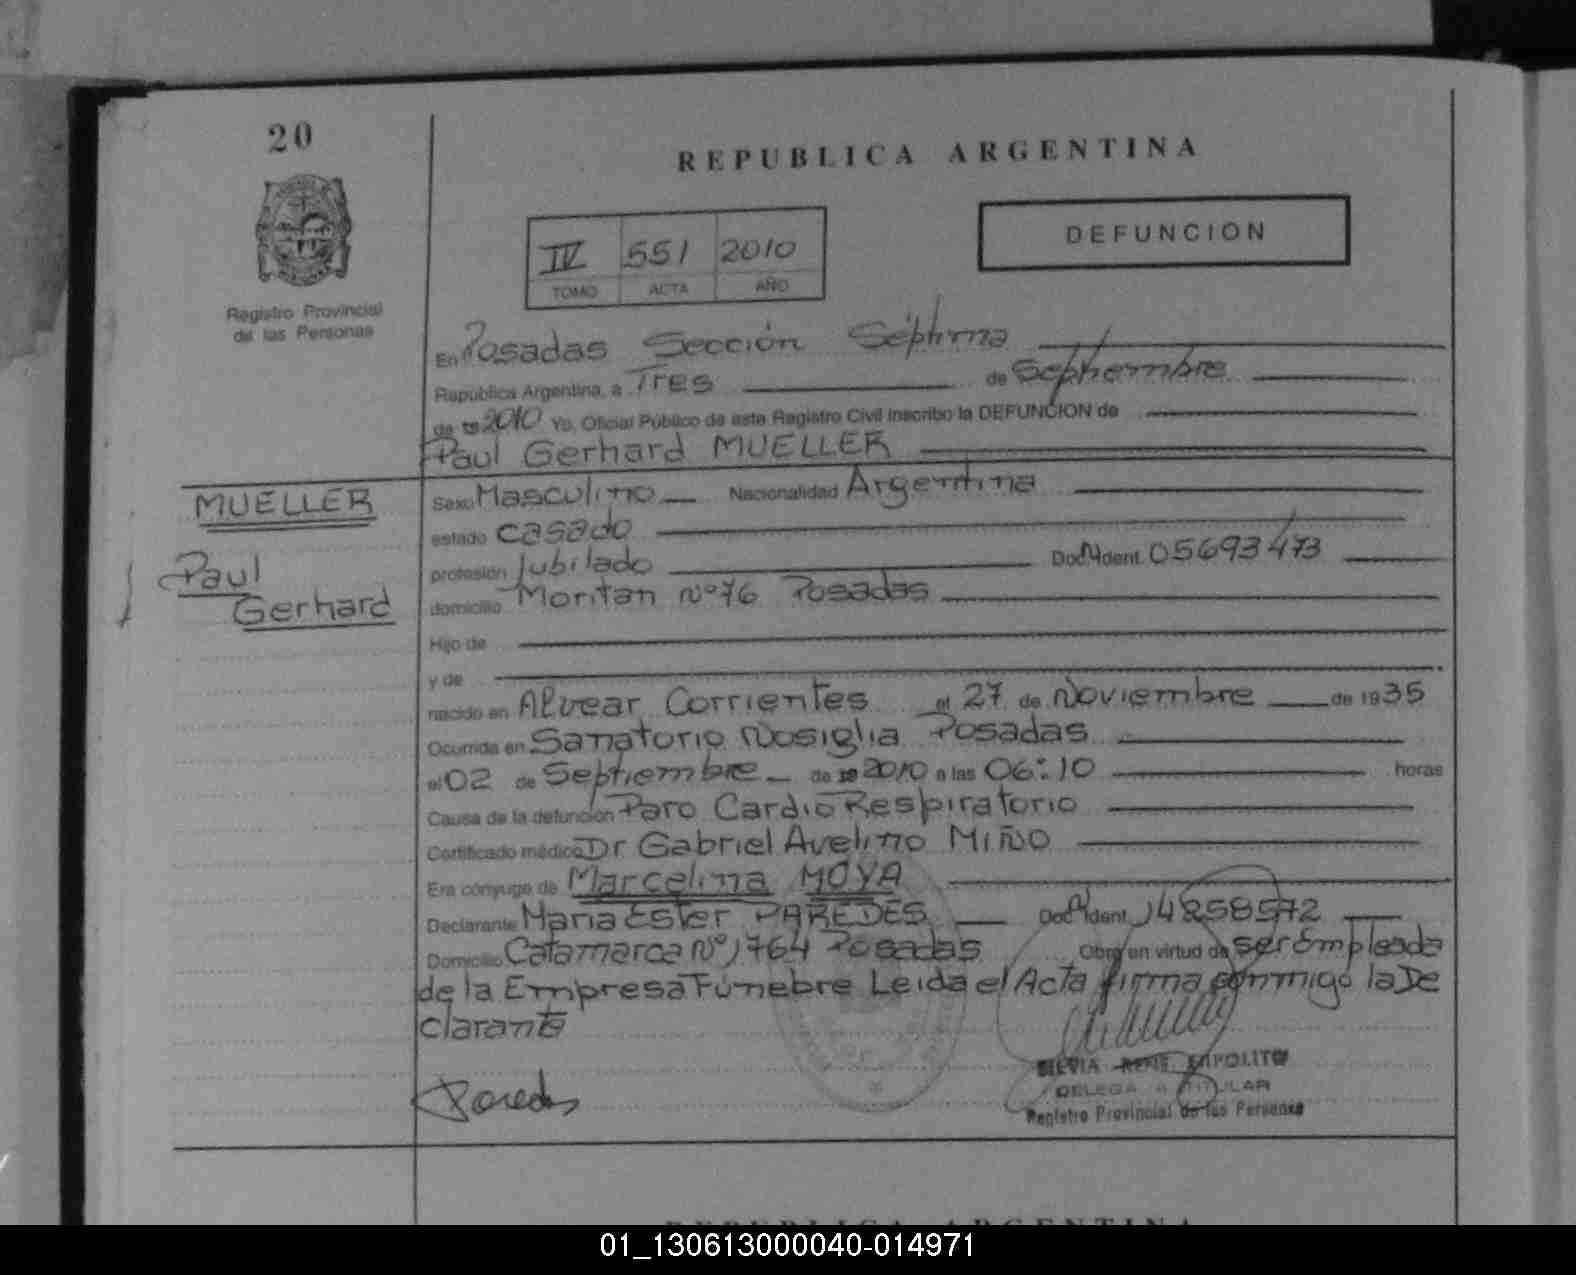 20
REPUBLICA ARGENTINA
Registro Provincial
de las Personas
IV 551 2010
TOMO ACTA AÑO
DEFUNCION
En Posadas Sección Séptima
República Argentina, a Tres de Septiembre
de 19 2010 Yo, Oficial Público de este Registro Civil inscribo la DEFUNCION de
Paul Gerhard MUELLER
MUELLER
Paul
Gerhard
Sexo Masculino Nacionalidad Argentina
estado casado
profesión Jubilado Doc. Ident. 05693473
domicilio Moritan Nº 76 Posadas
Hijo de
y de
nacido en Alvear Corrientes el 27 de Noviembre de 1935
Ocurrida en Sanatorio Nosiglia Posadas
el 02 de Septiembre de 19 2010 a las 06:10 horas
Causa de la defunción Paro Cardio Respiratorio
Certificado médico Dr Gabriel Avelino Miño
Era cónyuge de Marcelina MOYA
Declarante Maria Ester PAREDES Doc. Ident. 14258572
Domicilio Catamarca Nº 1764 Posadas Obra en virtud de ser Empleada
de la Empresa Fúnebre Leida el Acta firma conmigo la De
clarante
Paredes
SILVIA RENE HIPOLITO
DELEGADA TITULAR
Registro Provincial de las Personas
REPUBLICA ARGENTINA
01_130613000040-014971